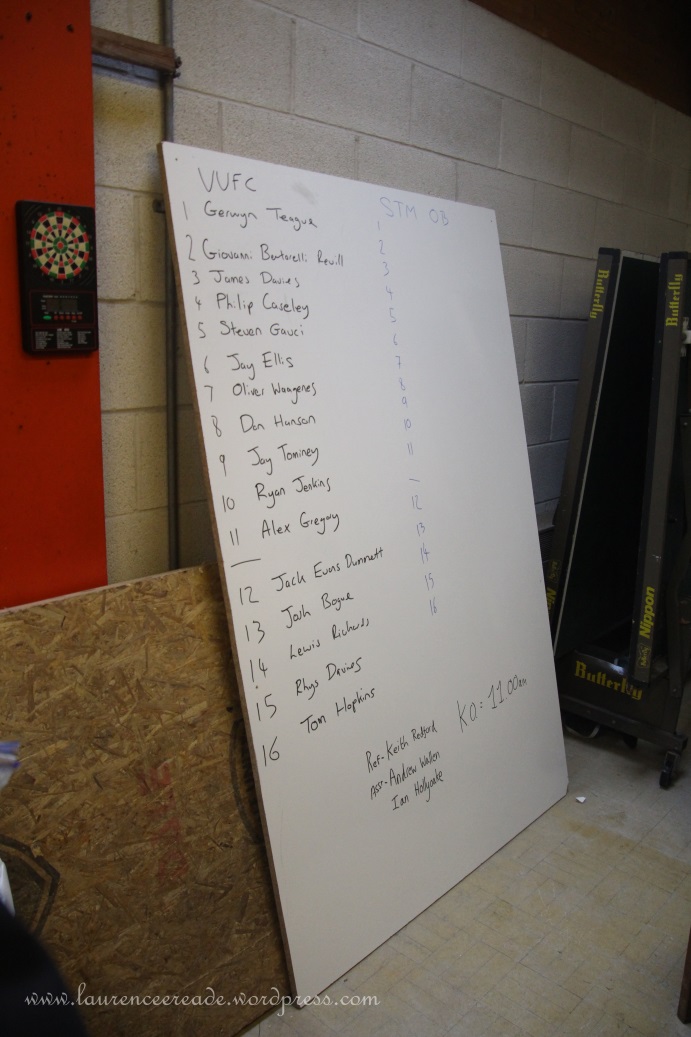 VUFC
1 Gerwyn Teague
2 Giovanni Bertorelli Revill
3 James Davies
4 Philip Caseley
5 Steven Gauci
6 Jay Ellis
7 Oliver Waagenes
8 Dan Hanson
9 Jay Tominey
10 Ryan Jenkins
11 Alex Gregory
—
12 Jack Evans Dunnett
13 Josh Bogue
14 Lewis Richards
15 Rhys Davies
16 Tom Hopkins
STM OB
1
2
3
4
5
6
7
8
9
10
11
—
12
13
14
15
16
Ref-Keith Redford
Asst-Andrew Wallen
Ian Holyoake
KO: 11.00am
Butterfly
Butterfly
Nippon
Butterfly
www.laurenceereade.wordpress.com